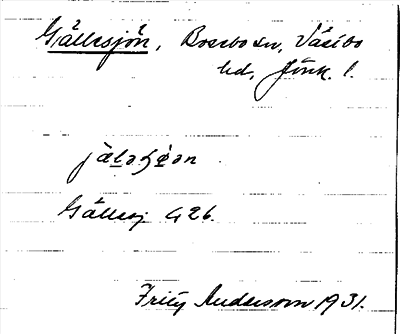 Gällesjön, Bosebo sn, Västbo
hd, Jönk. l.
Gällesj. G 26.
Fritz Andersson 1931.